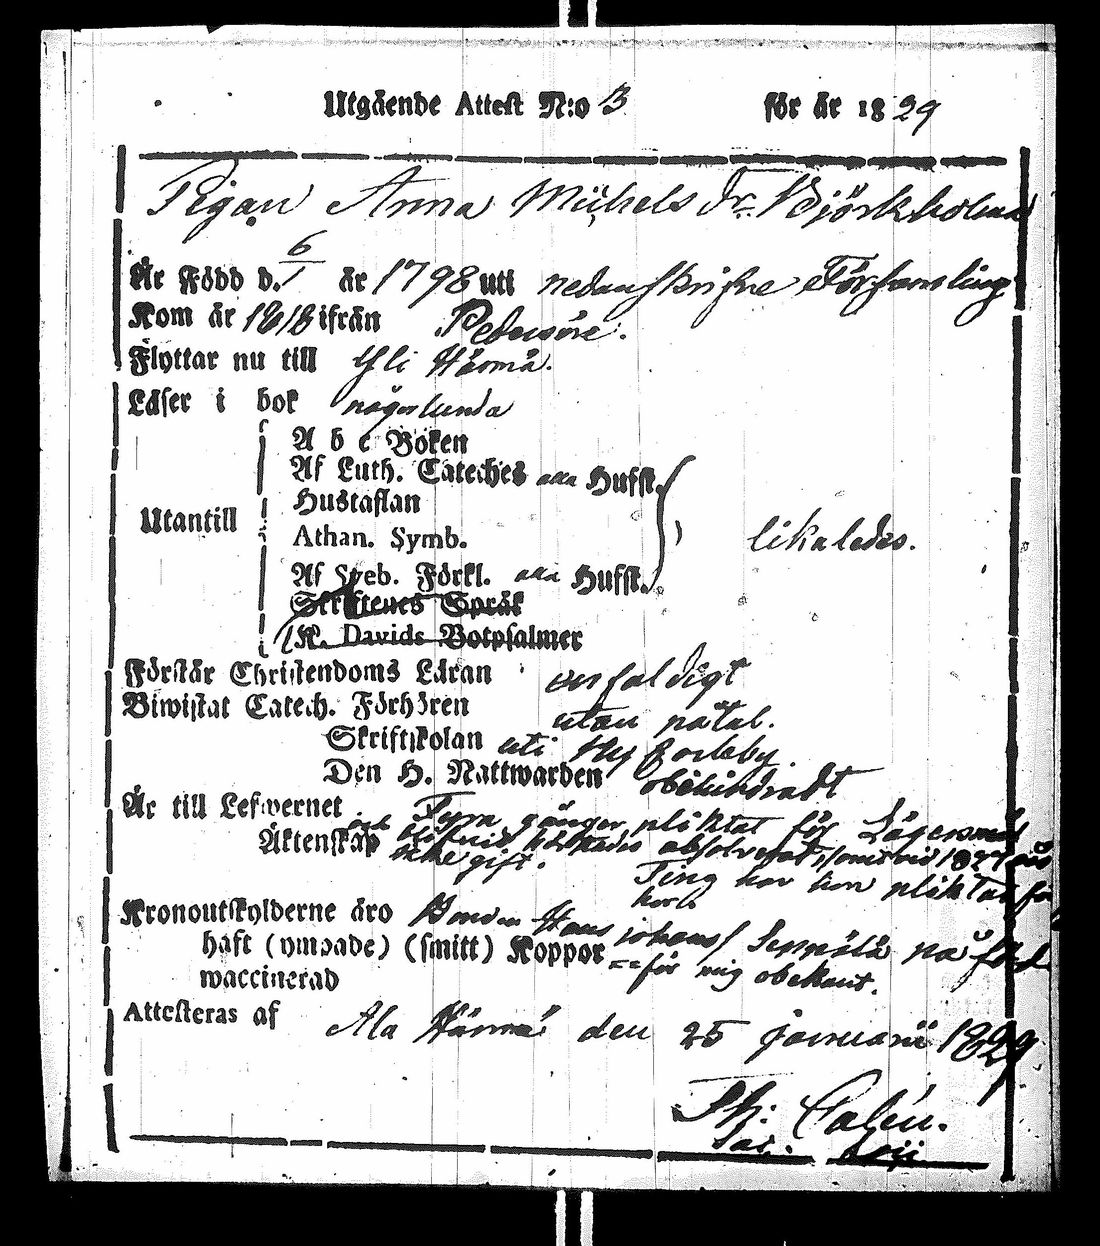 Utgående Attest N:o 3 för år 1829
Pigan Anna Michels dr. Björkholma
Är Född d. 6/1 år 1798 uti nedanskrifne Församling
Kom år 1818 ifrån Pedersöre.
Flyttar nu till Yli Härmä.
Läser i bok någorlunda
Utantill
A b c Boken
Af Luth. Cateches Hufst.
Hustaflan
Athan. Symb.
Af Sveb. Förkl. Hufst.
likaledes.
Skriftenes Språk
K. Davids Botpsalmer
Förstår Christendoms Läran enfaldigt
Biwistat Catech. Förhören utan påtal.
Skriftskolan uti Ny Carleby.
Den H. Nattwarden obehindradt
Är till Lefwernet Fyra gånger pliktat för Lägersmål
och absolverat, 1827 års
Äktenskap icke gift.
Ting har hon pliktat för
hor
Kronoutskylderne äro Bonden Hans Johans Seppälä på
haft (ympade) (smitt) Koppor för mig obekant.
waccinerad
Attesteras af Ala Härmä den 25 januarii 1829
Th: Calén.
Sac.